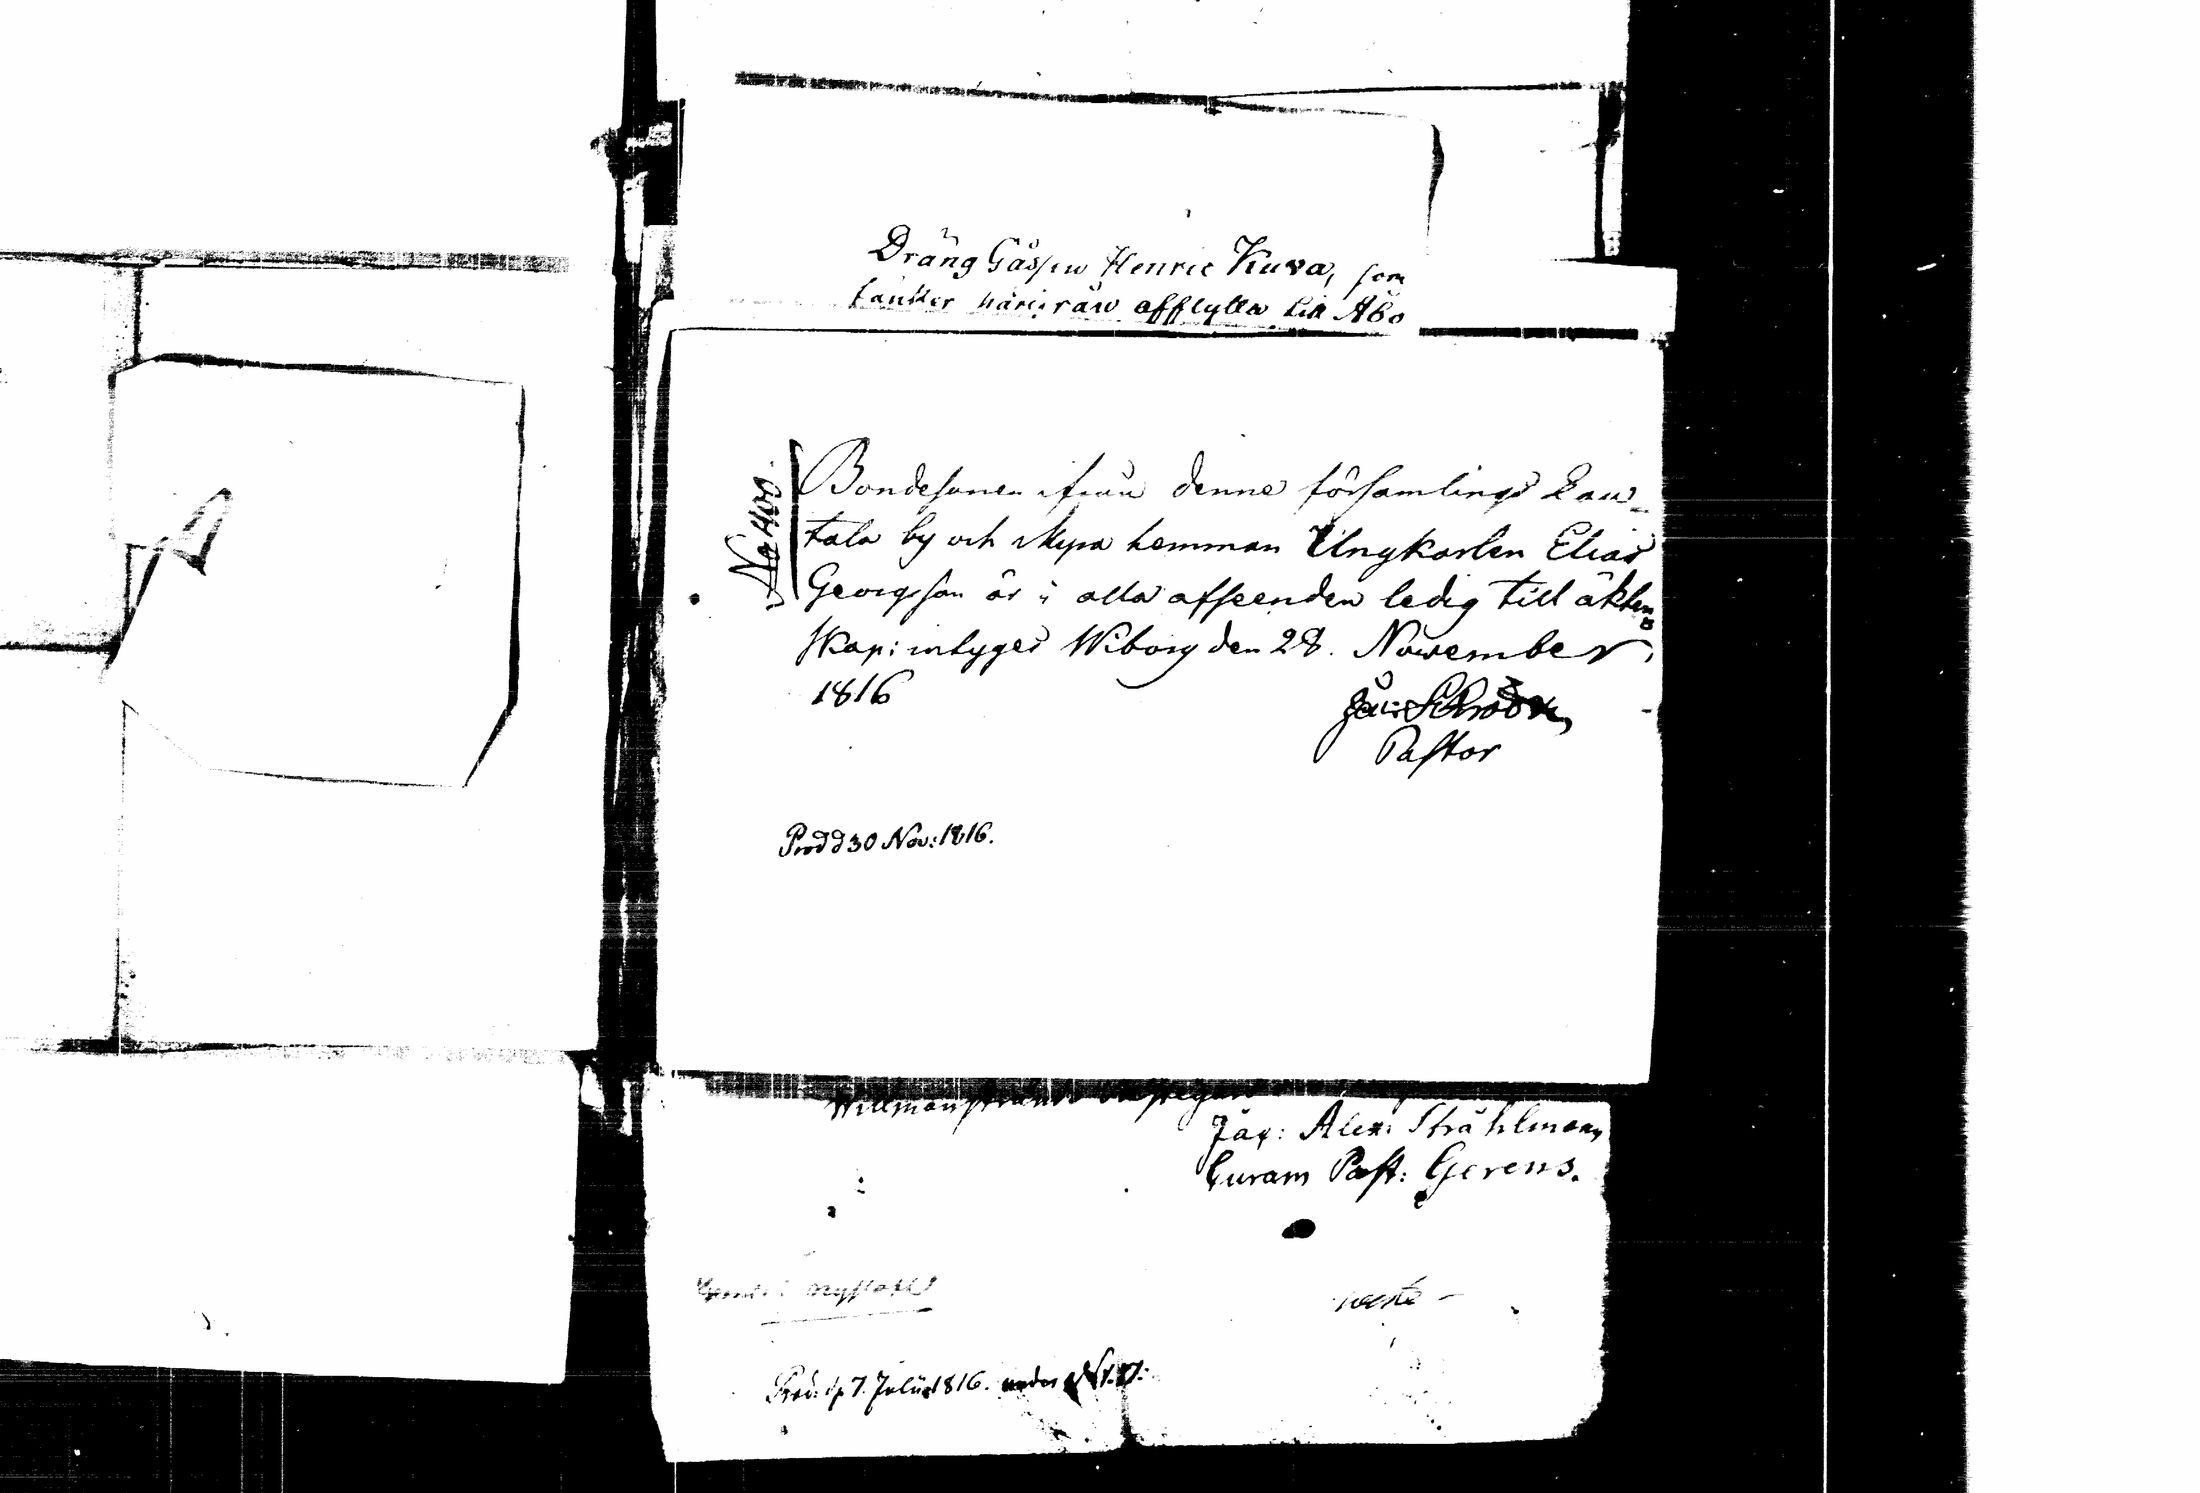 Dräng Gåssen Henric Kuva, som
tänker härifrån afflytta till Åbo
No 400.
Bondesonen ifrån denne församlings Lau-
tala by och hemman Ungkarlen Elias
Georgsson är i alla afseenden ledig till äkten-
skap: intygas Wiborg den 28. November,
1816
Pastor
Prod d 30 Nov: 1816.
Willmanstrand
Jac: Alex: Stråhlman,
Curam Past: Gerens.
Nyslott
Prod: d. 7. Julii 1816. under